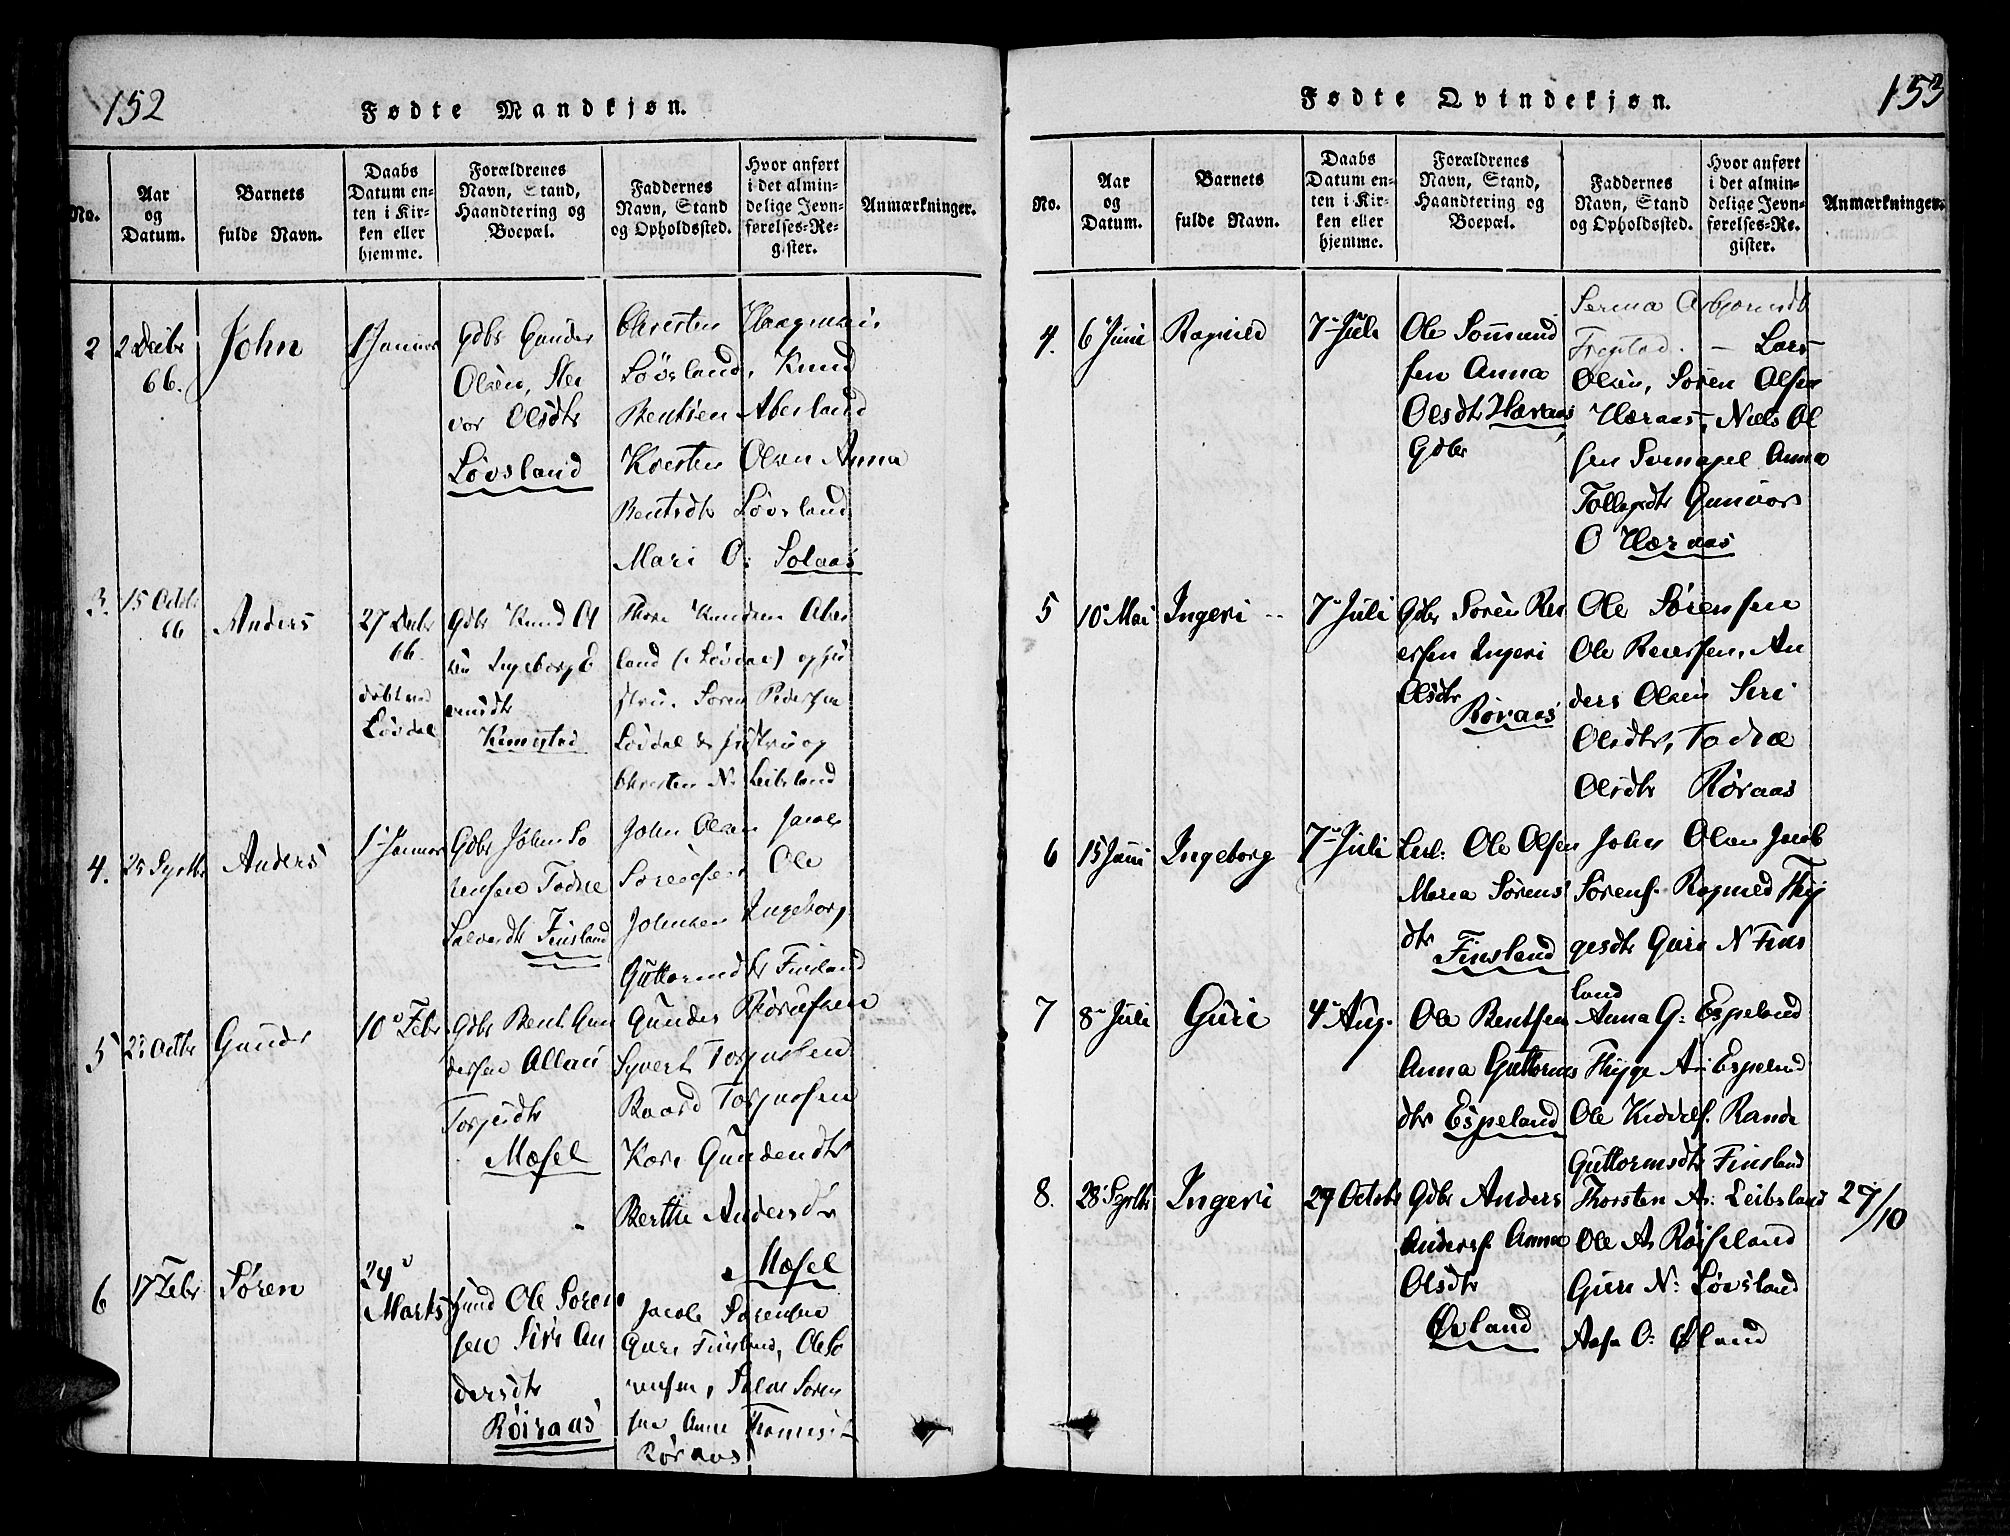 152
Fødte Mandkjøn.
No.
Aar
og
Datum.
Barnets
fulde Navn.
Daabs
Datum en-
ten i Kir-
ken eller
hjemme.
Forældrenes
Navn, Stand,
Haandtering og
Boepæl.
Faddernes
Navn, Stand
og Opholdssted.
Hvor anført
i det almin-
delige Jevn-
førelses-Re-
gister.
Anmærkninger.
2
2 Decbr
66.
John
1 Januar
Gdbr Gunder
Olsen,
vor Olsdtr
Løvsland
Chresten
Løvsland, Knud
Bentsen Aberland
Kresten Olsen Anna
Bentsdtr Løvsland
Mari O: Solaas
3.
15 Octbr
66
Anders
27 Decbr
66.
døbt ved
Løvdal
Gdbr Knud Ol
sen Ingeborg E
vensdtr
Thore Knudsen Aber
land (Løvdal) og hu
stru. Søren Pedersen
Løvdal & hustru og
Chresten N. Leibsland
4.
25 Septbr
Anders
1 Januar
Gdbr John Sø
rensen Todne
Salvesdtr Finsland
John Olsen Jacob
Sørensen Ole
Johnsen Ingeborg
Guttormsdtr Finsland
5
23 Octbr
Gunder
10 Febr
Gdbr Bent Gun
dersen Allau
Torjusdtr
Mæsel
Gunder
Syvert Torjussen
Baard Torjussen
Kari Gundersdtr
Berthe Andersdtr
Mæsel
6
17 Febr
Søren
24
Marts
Ole Søren
sen Siri An
dersdtr
Røiraas
Jacob Sørensen
Guri Finsland, Ole Sø
rensen, Salve Søren
sen Anne Thomesdt
Røraas
153
Fødte Qvindekjøn.
No.
Aar
og
Datum.
Barnets
fulde Navn.
Daabs
Datum en-
ten i Kir-
ken eller
hjemme.
Forældrenes
Navn, Stand,
Haandtering og
Boepæl.
Faddernes
Navn, Stand
og Opholdssted.
Hvor anført
i det almin-
delige Jevn-
førelses-Re-
gister.
Anmærkninger.
4.
6 Juni
Ragnild
7 Juli
Ole Sommund
sen Anna
Olsdtr Hæraas
Gdbr
Serina Asbjørnsdtr
Frøstad. — Lars
Olsen, Søren Olsen
Hæraas, Niels Ol
sen Anna
Tollagsdtr Gunvor
O Hæraas
5
10 Mai
Ingeri
7 Juli
Gdbr Søren Rei
ersen Ingeri
Olsdtr
Røraas
Ole Sørensen
Ole Reiersen, An
ders Olsen Siri
Olsdtr, Todne
Olsdtr Røraas
6
15 Juni
Ingeborg
7 Juli
Ole Olsen
Maria Sørens
dtr Finsland
John Olsen Jacob
Sørens. Ragnild Thy
gesdtr Guri N Fins
land
7
8 Juli
Guri
4 Aug.
Ole Bentsen
Anna Guttorms
dtr Espeland
Anna G: Espeland
Thyge A: Espeland
Ole Kiddels. Rande
Guttormsdtr Finsland
8.
28 Septbr
Ingeri
29 Octobr
Gdbr Anders
Anders. Anna
Olsdtr
Øvland
Thorsten A: Leibsland
Ole A: Røiseland
Guri N: Løvsland
Aase O: Øland
29/10